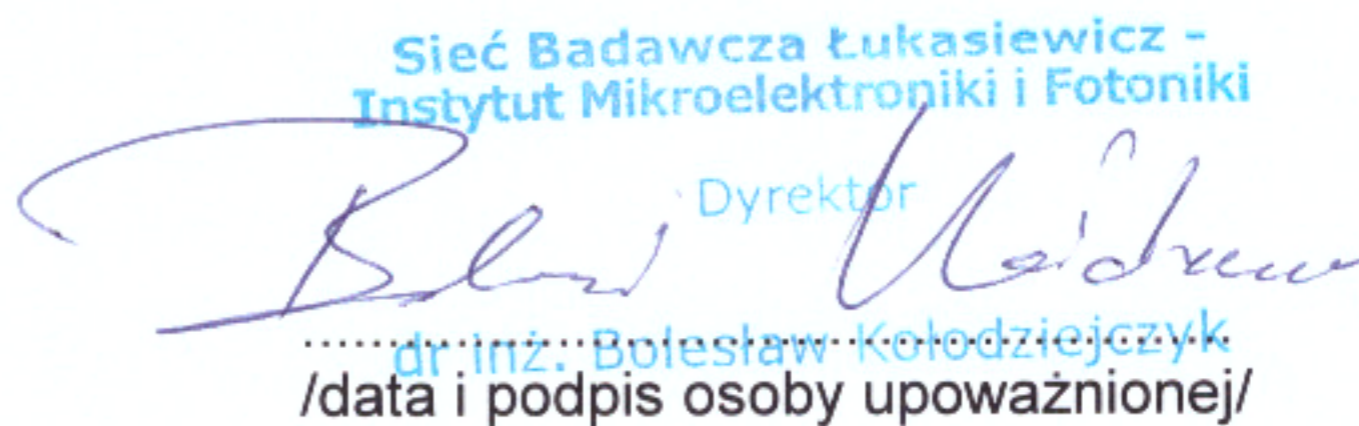 Sieć Badawcza Łukasiewicz -
Instytut Mikroelektroniki i Fotoniki
Dyrektor
dr inż. Bolesław Kołodziejczyk
/data i podpis osoby upoważnionej/